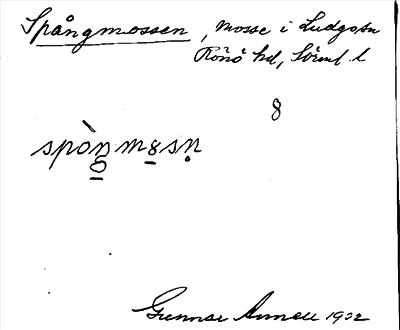 Spångmossen, mosse i Ludgo sn
Rönö hd, Sörml. l
8
spòŋmɞsn̥
Gunnar Annell 1932